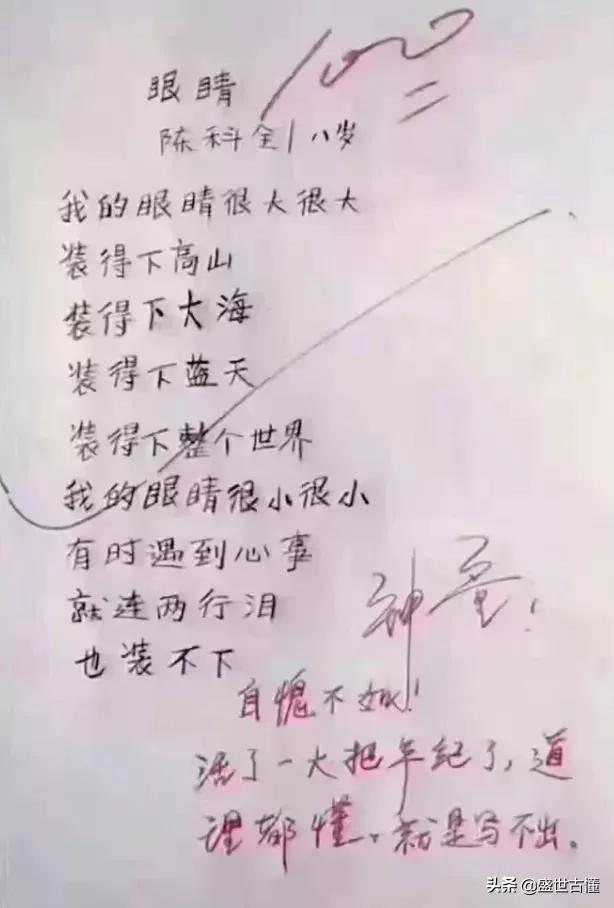 眼睛
100
陈科全 八岁
我的眼睛很大很大
装得下高山
装得下大海
装得下蓝天
装得下整个世界
我的眼睛很小很小
有时遇到心事
就连两行泪
也装不下
神童！
自愧不如！
活了一大把年纪了，道
理都懂。就是写不出。
头条 @盛世古董